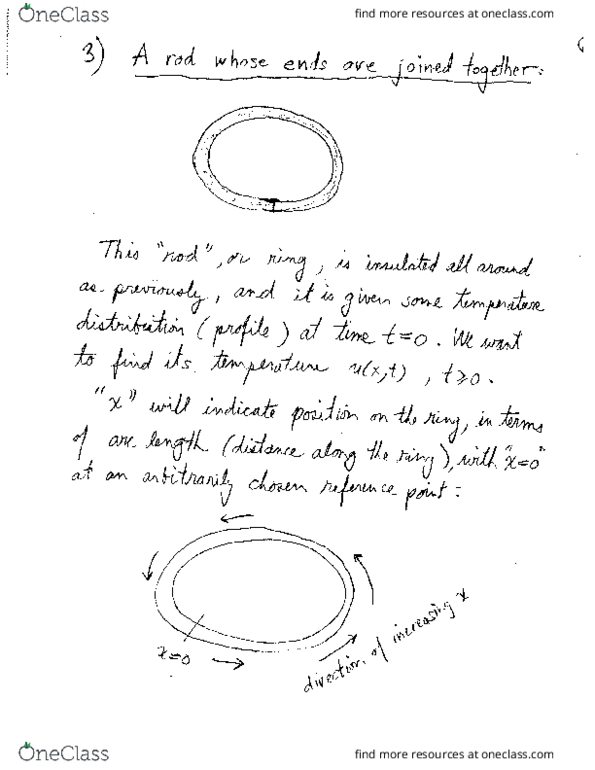 OneClass
find more resources at oneclass.com
3) A rod whose ends are joined together:
This "rod", or ring, is insulated all around
as previously, and it is given some temperature
distribution (profile) at time t=0. We want
to find its temperature u(x,t), t≥0.
"x" will indicate position on the ring, in terms
of arc length (distance along the ring), with "x=0"
at an arbitrarily chosen reference point:
x=0
direction of increasing x
OneClass
find more resources at oneclass.com